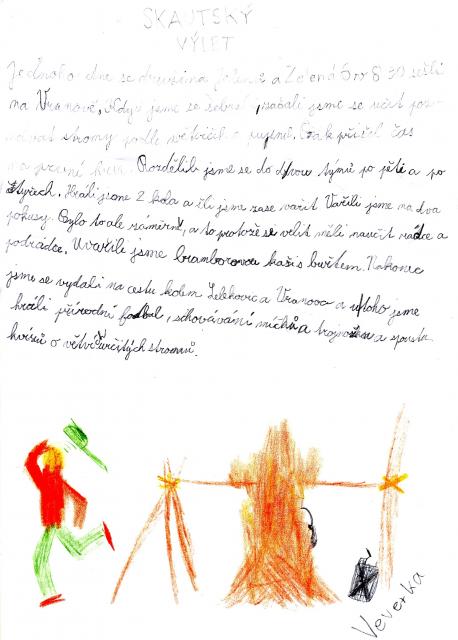 SKAUTSKÝ
VÝLET
Jednoho dne se družina Jelenů a Zelená 5 v 8 30 sešli
na Vranově. Když jsme se sebrali, začali jsme se učit poz-
návat stromy podle větviček a pupenů. Pak přišel čas
na první hru. Rozdělili jsme se do dvou týmů po pěti a po
čtyřech. Hráli jsme 2 kola a šli jsme zase vařit. Vařili jsme na dva
pokusy. Bylo to ale záměrně, a to protože se velit měli naučit rádce a
podrádce. Uvařili jsme bramborovou kaši s buřtem. Nakonec
jsme se vydali na cestu kolem Lelekovic a Vranova a u toho jsme
hráli přírodní fotbal, schovávání míčků a trojnožka a spousta
kvízů o větvích určitých stromů.
Veverka